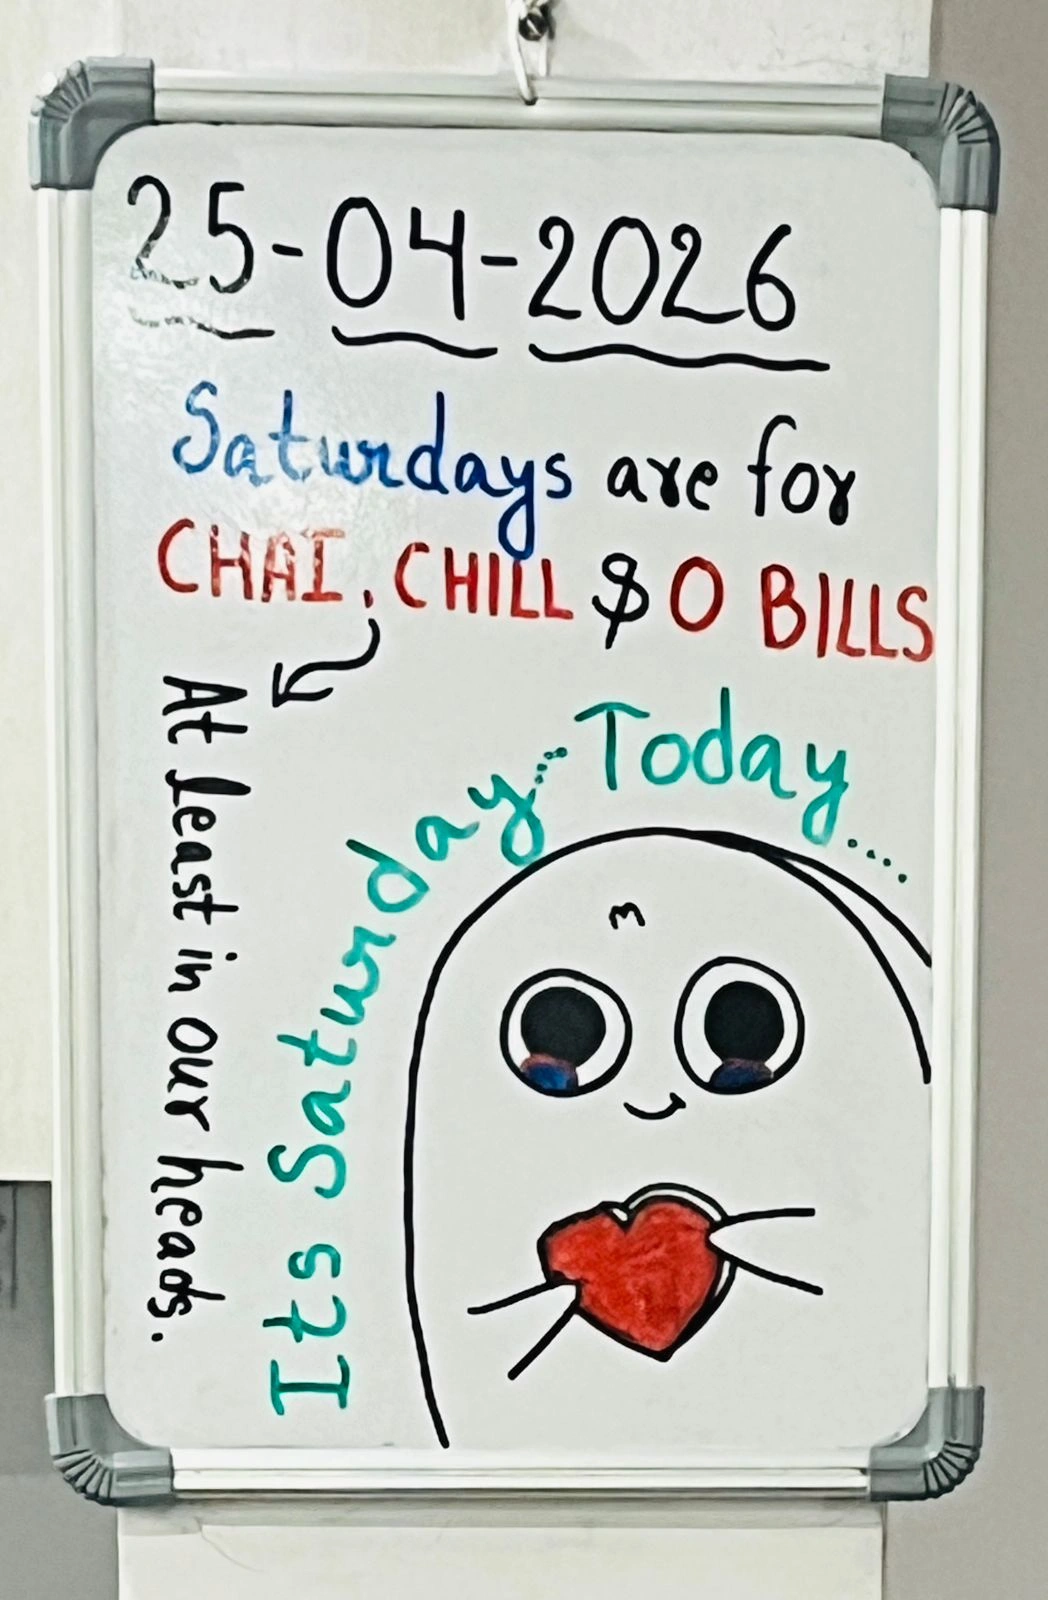 25-04-2026
Saturdays are for
CHAI, CHILL $ 0 BILLS
At least in our heads.
Its Saturday... Today....